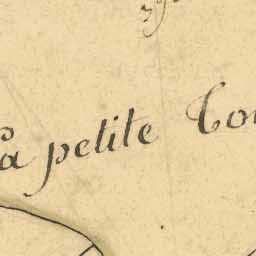 La petite Cou